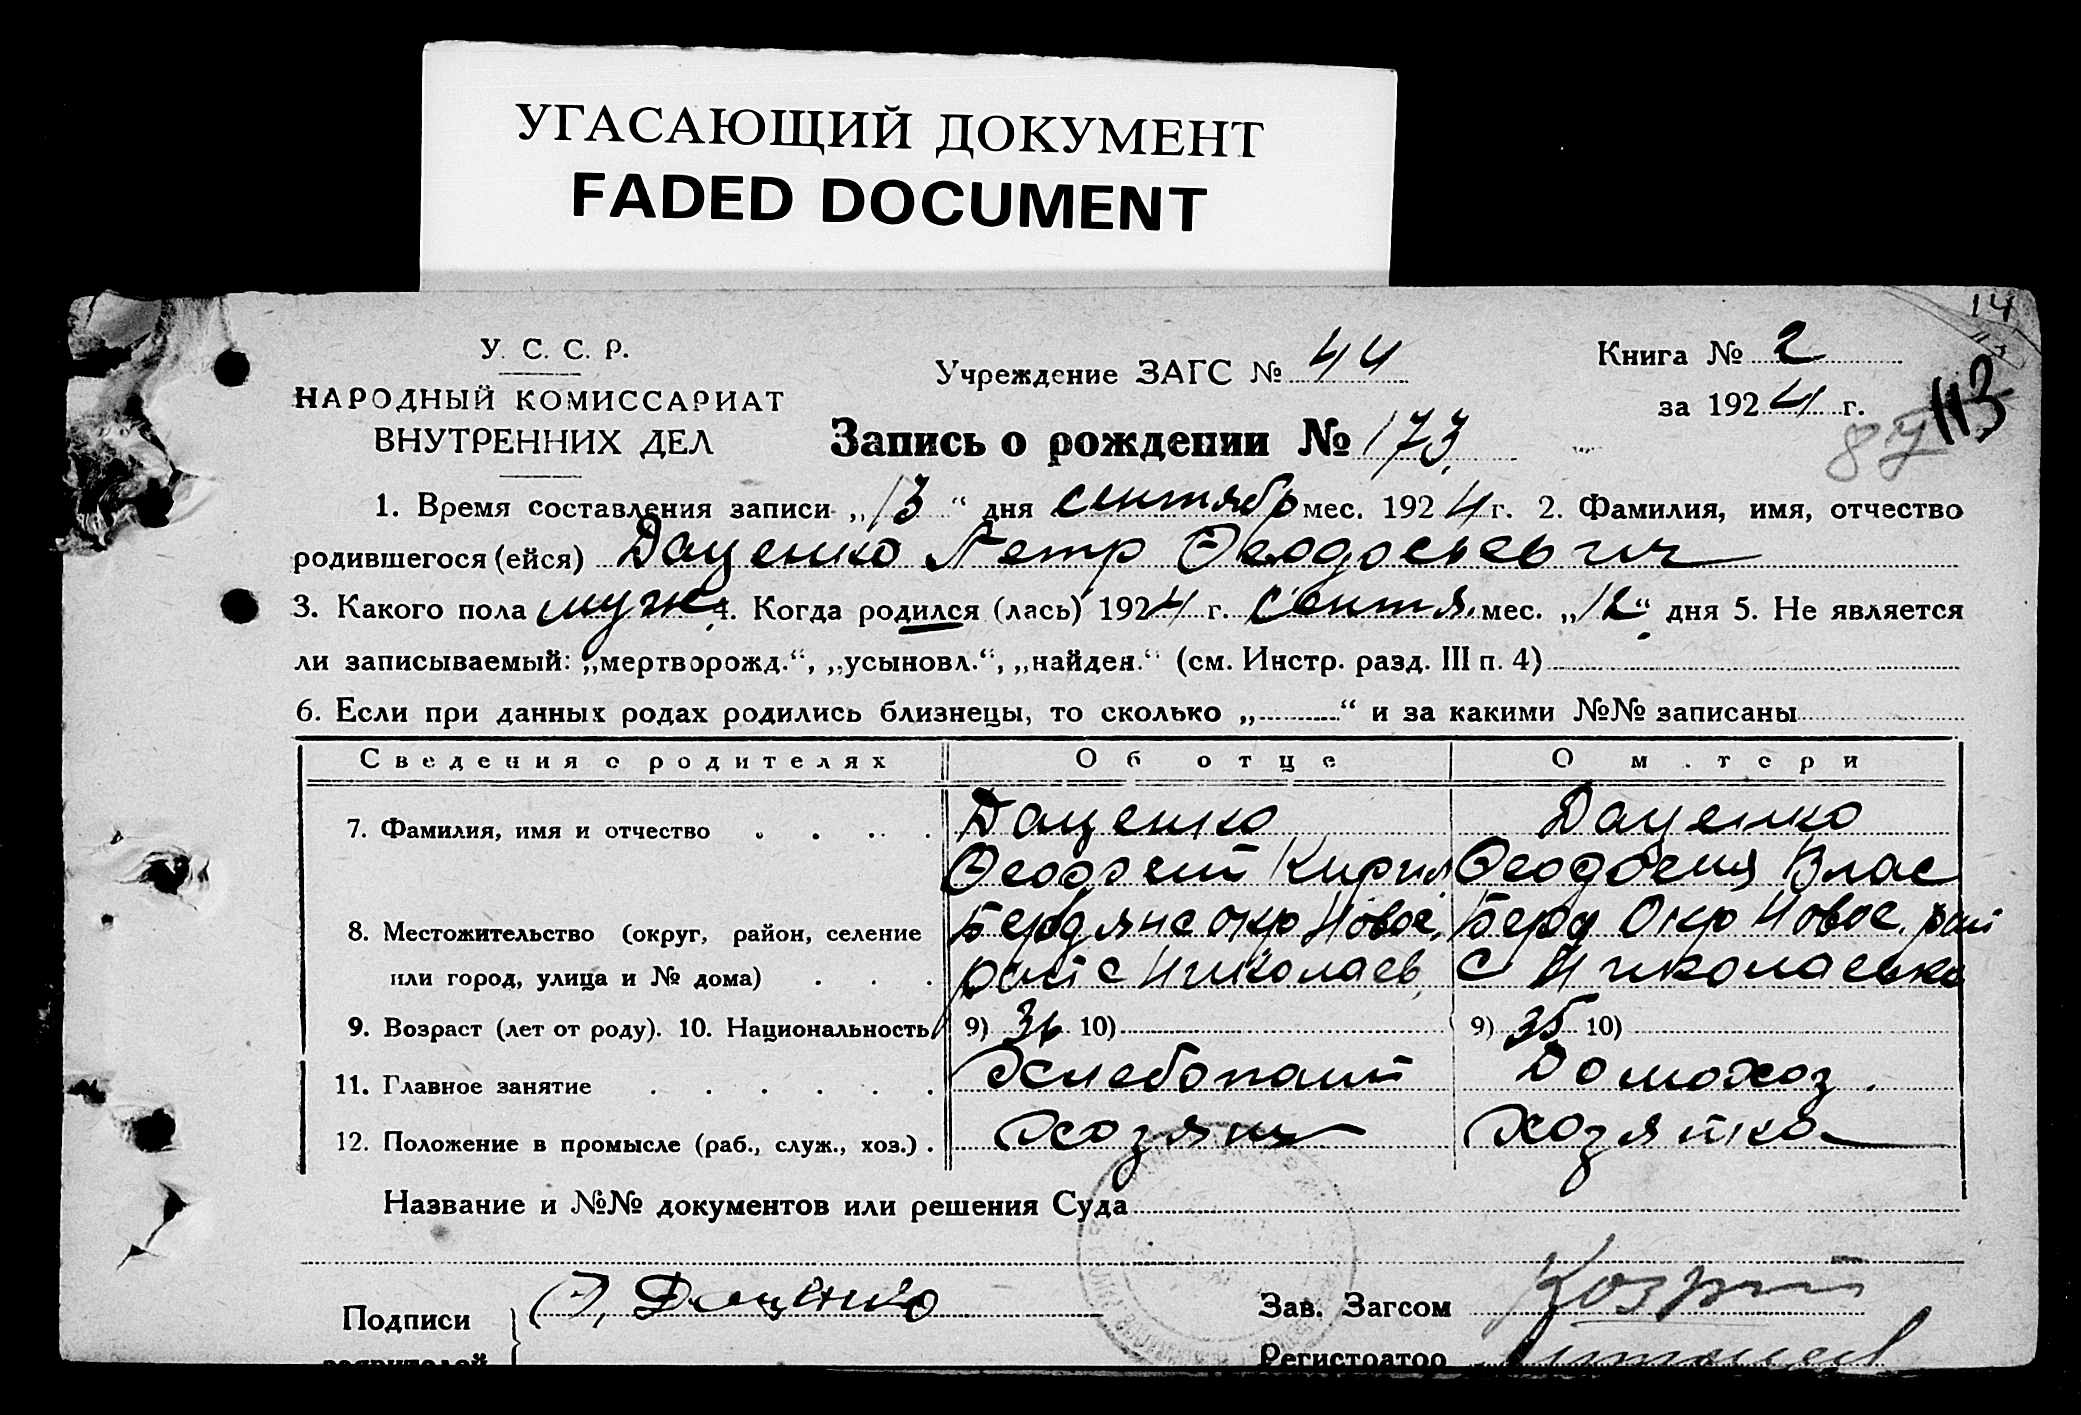 УГАСАЮЩИЙ ДОКУМЕНТ
FADED DOCUMENT
14
У. С. С. Р.
НАРОДНЫЙ КОМИССАРИАТ
ВНУТРЕННИХ ДЕЛ
Учреждение ЗАГС № 44
Книга № 2
за 1924 г.
87 113
Запись о рождении № 173
1. Время составления записи „13“ дня сентябр мес. 1924 г. 2. Фамилия, имя, отчество
родившегося (ейся) Даценко Петр Ѳеодосьевич
3. Какого пола муж 4. Когда родился (лась) 1924 г. Сентя. мес. „12“ дня 5. Не является
ли записываемый: „мертворожд.“, „усыновл.“, „найден.“ (см. Инстр. разд. III п. 4)
6. Если при данных родах родились близнецы, то сколько „ “ и за какими №№ записаны
Сведения о родителях Об отце О м.тери
7. Фамилия, имя и отчество Даценко Даценко
Ѳеодосий Кирил Ѳеодосия Влас
8. Местожительство (округ, район, селение Бердянс окр Новос. Берд Окр Новос. рай
или город, улица и № дома) рай с Николаев. С Николаевка
9. Возраст (лет от роду). 10. Национальность 9) 36 10) 9) 35 10)
11. Главное занятие Хлебопаш Домохоз.
12. Положение в промысле (раб., служ., хоз.) Хозяин Хозяйка
Название и №№ документов или решения Суда
Подписи Ѳ. Даценко Зав. Загсом
заявителей Регистратор